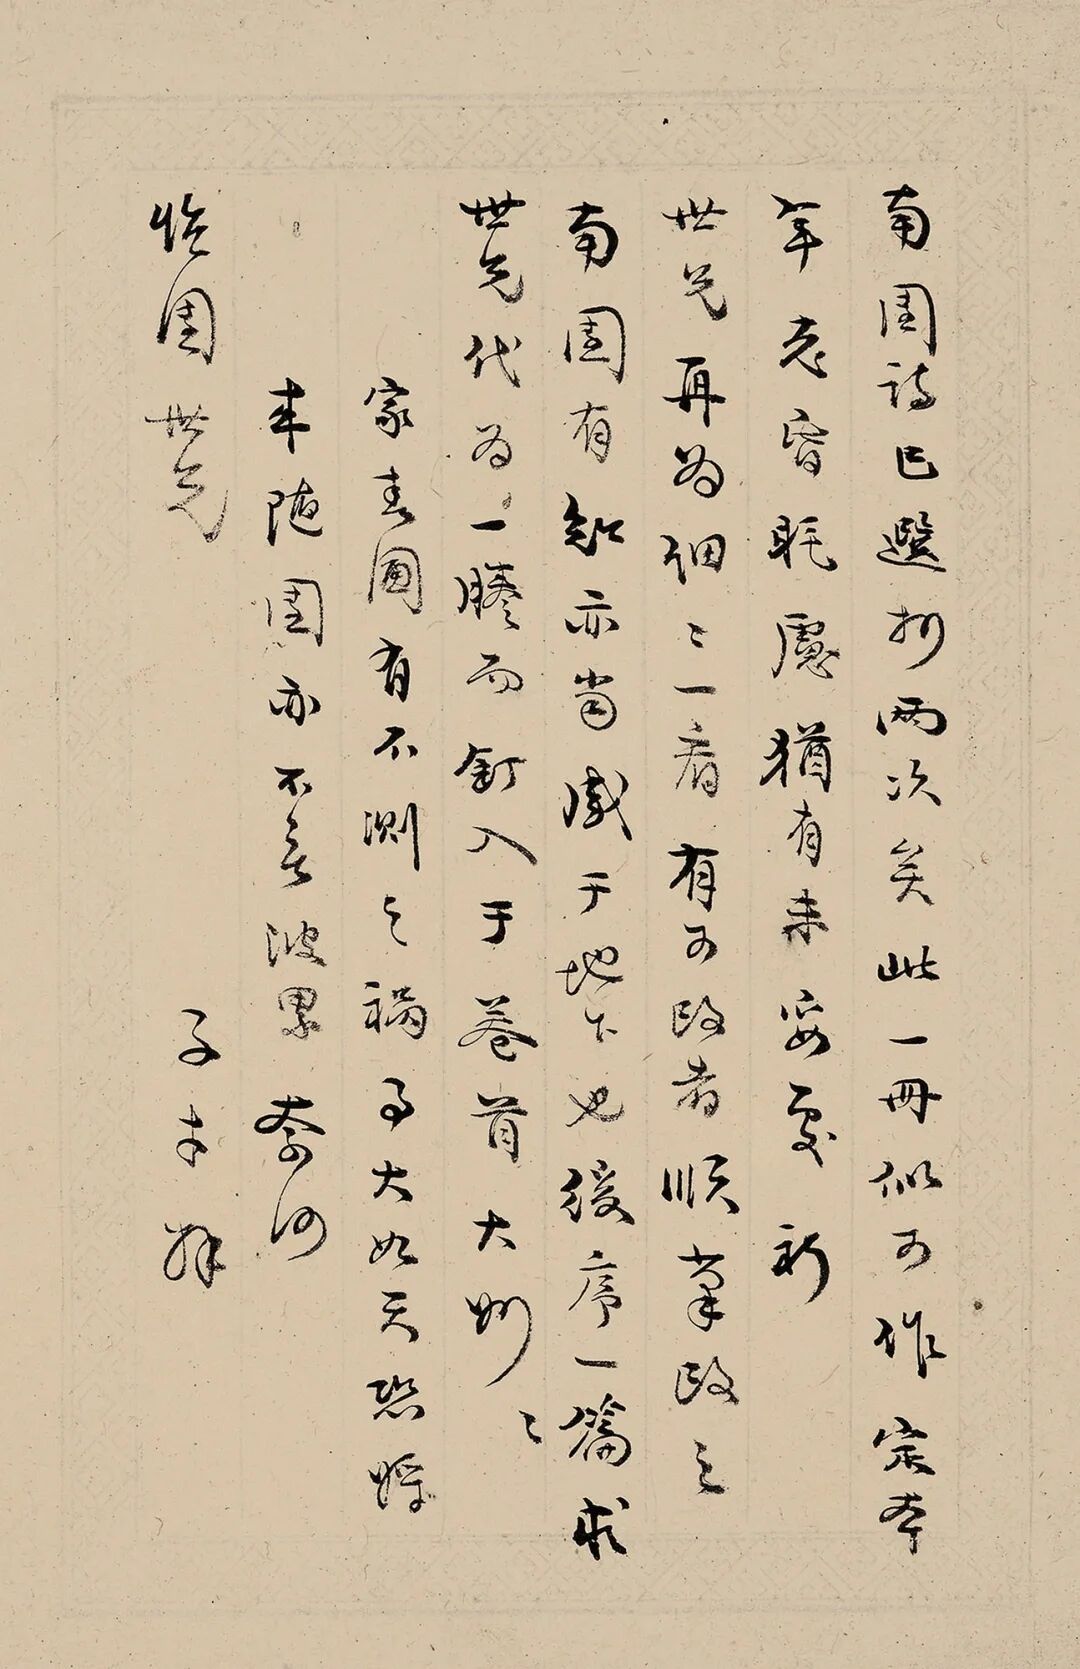 南園詩已選抄兩次矣此一冊似可作定本
年老昏眊慮猶有未妥處祈
世兄再為細〻一看有可改者順筆改之
南園有知亦當感于地下也後序一篇求
世兄代為一謄而釘入于卷首大妙〻
家春圃有不測之禍事大如天恐將
來隨園亦不無波累奈何
世兄
子才拜